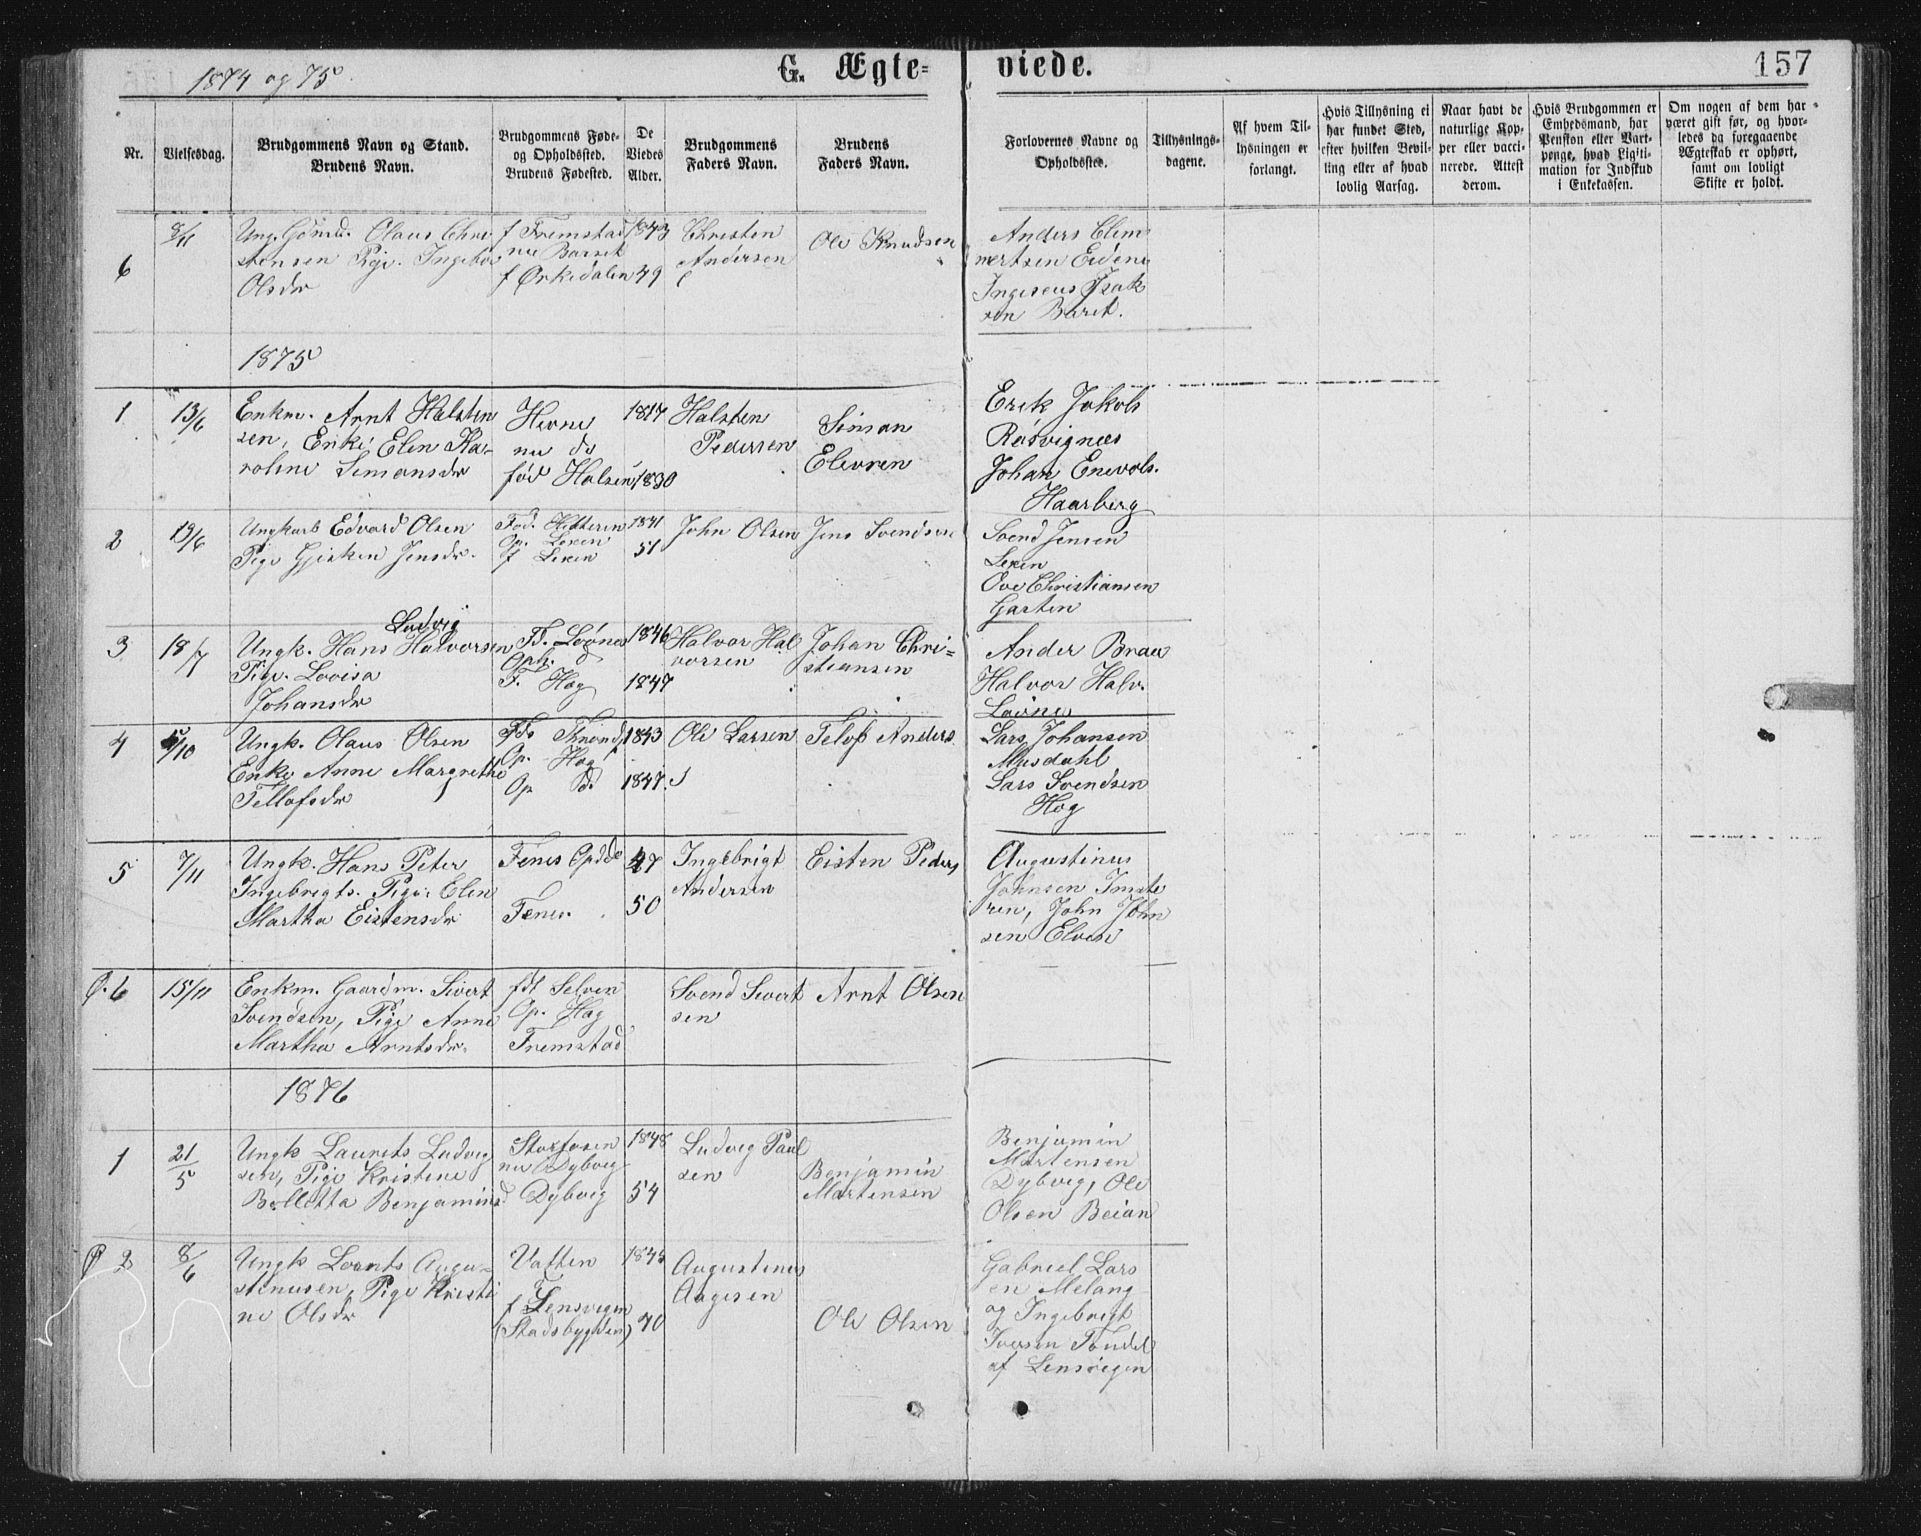 1874 og 75.
G. Ægte-
viede.
157
Nr.
Vielsesdag.
Brudgommens Navn og Stand.
Brudens Navn.
Brudgommens Føde-
og Opholdssted.
Brudens Fødested.
De
Viedes
Alder.
Brudgommens
Faders Navn.
Brudens
Faders Navn.
Forlovernes Navne og
Opholdssted.
Tillysnings-
dagene.
Af hvem Til-
lysningen er
forlangt.
Hvis Tillysning ei
har fundet Sted,
efter hvilken Bevil-
ling eller af hvad
lovlig Aarsag.
Naar havt de
naturlige Kop-
per eller vacci-
nerede. Attest
derom.
Hvis Brudgommen er
Embedsmand, har
Pension eller Vart-
penge, hvad Ligiti-
mation for Indskud
i Enkekassen.
Om nogen af dem har
været gift før, og hvor-
ledes da foregaaende
Ægteskab er ophørt,
samt om lovligt
Skifte er holdt.
6
8/11
Ung. Gdmd. Olaus Chri
stensen Pige. Ingebor
Olsdr
f Fremstad
nu Barset
f Ørkedalen
1843
49
Christen
Andersen
Ole Knudsen
Anders Clem
mertsen Eidem
Ingeseus Isak
sen Baret.
1875
1
13/6
Enkm. Arnt Halsten
sen, Enke Elen Ka-
roline Simonsdr
Hevne
nu do
fød Halsen
1817
1830
Halsten
Pedersen
Simon
Elevsen
Erik Jakobs
Røsvignæs
Johan Enevols.
Haarberg
2
19/6
Ungkarl Edvard Olsen
Pige Gjisken Jensdr.
Fød. Hitteren
Op. Lexen
f Lexen
1841
51
John Olsen
Jens Svendsen
Svend Jensen
Lexen
Ove Christiansen
Garten
3
18/7
Ludvig
Ungk. Hans Halvorsen
Pige. Lovisa
Johansdr
Fd. Leønes
Oph. d
F. Hog
1846
1847
Halvor Hal
vorsen
Johan Chri-
stiansen
Ander Braa
Halvor Halv.
Løøne
4
5/10
Ungk. Olaus Olsen
Enke Anne Margrethe
Tellofsdr
Fd. Trond.
Op. Hog
Op d
1843
1847.
Ole Larsen
Telof Anders
Lars Johansen
Musdahl
Lars Svendsen
Hog
5
7/11
Ungk. Hans Peter
Ingebregts. Pige: Elen
Martha Eistensdr
Fenes Opdde
Fenes.
47
50
Ingebrigt
Andersen
Eisten Peders
Augustinus
Johnsen Imste
ren, John John
sen Elven
Ø. 6
15/11
Enkm. Gaardm. Sivert
Svendsen, Pige Anne
Martha Arntsdr.
fdt Selven
Op. Hog
Fremstad
Svend Sivert
sen
Arnt Olsen
1876
1
21/5
Ungk Laurits Ludvig
sen, Pige Kristine
Bolletta Benjamins
d
Storfosen
nu Dybvig
Dybvig
1848
54
Ludvig Paul
sen
Benjamin
Martensen
Benjamin
Martensen
Dybvig, Ole
Olsen Beian
Ø 2
8/6
Ungk Lornts Augu-
stinusen, Pige Kristi
ne Olsdr
Vatten
f Lensvigen
(Stadsbygden)
1845
40
Augustenus
Aagesen
Ole Olsen
Gabriel Lars
en Melang
og Ingebrigt
Iversen Tondel
af Lensvigen